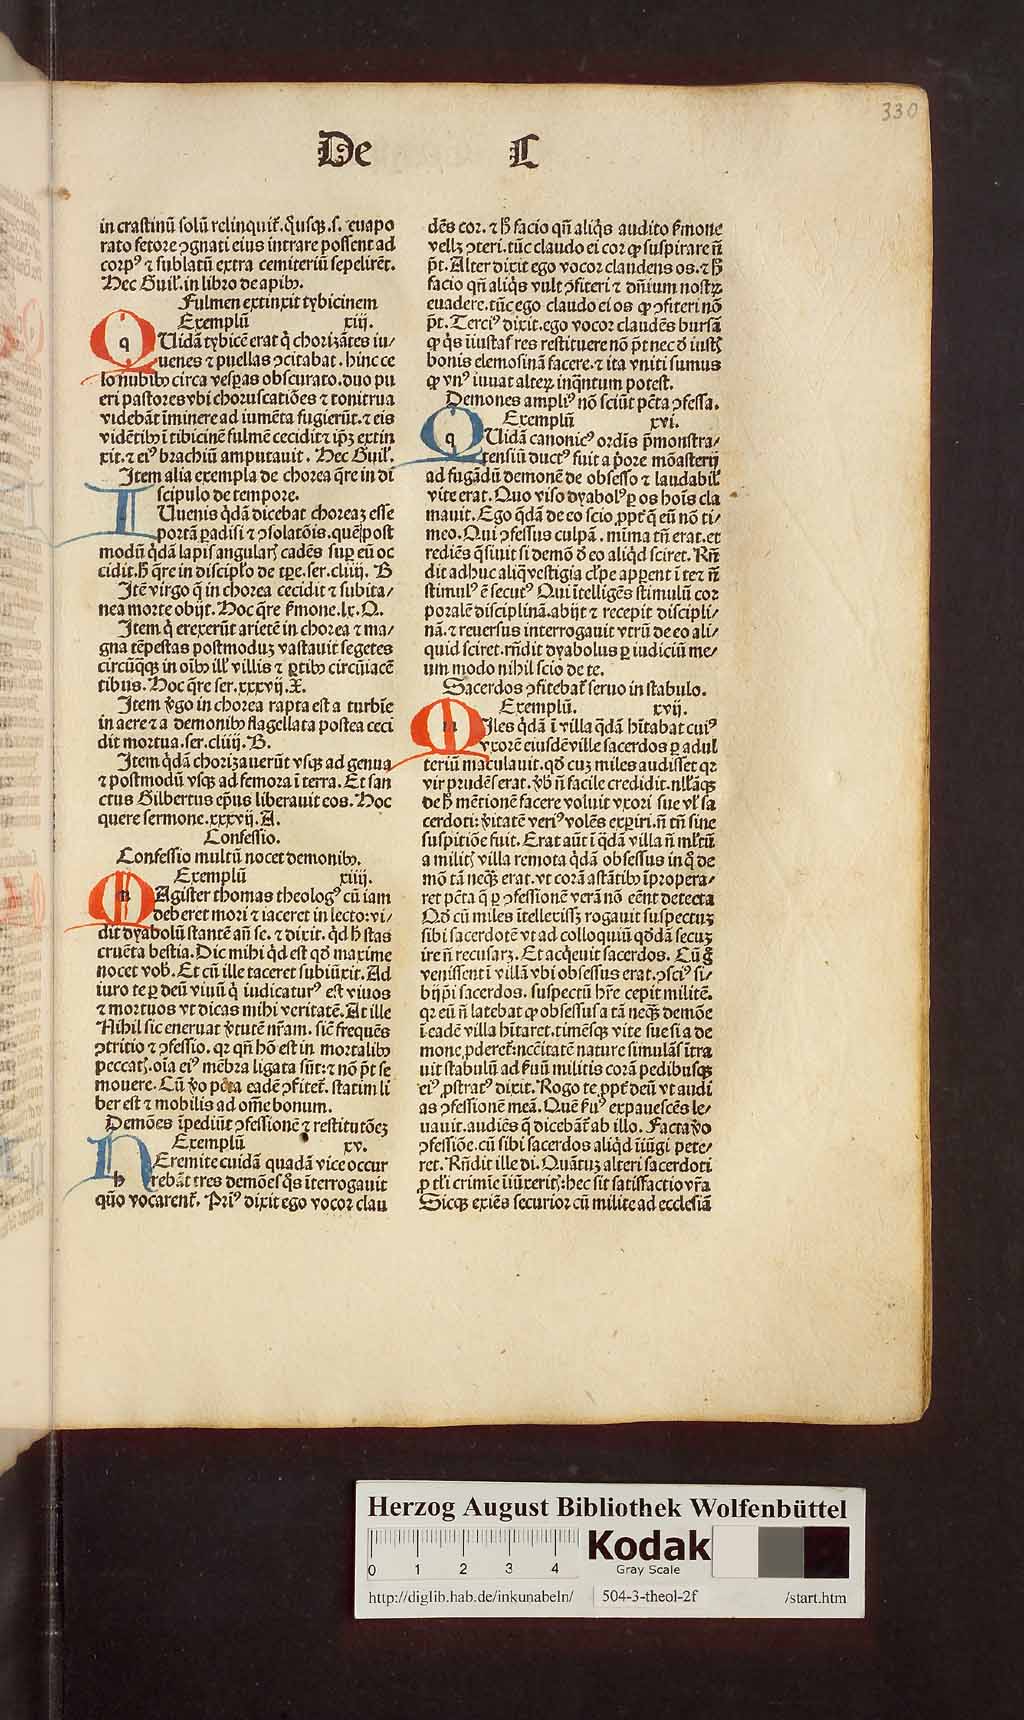 330
De L
in crastinū solū relinquit̄. q̇usqꝫ .s. euapo
rato fetore ꝯgnati eius intrare possent ad
corpꝰ ⁊ sublatū extra cemiteriū sepelirēt.
Hec Guil̓. in libro de apibꝰ.
Fulmen extinxit tybicinem
Exemplū xiij.
QUidā tybicē erat q̇ chorizātes iu⸗
uenes ⁊ puellas ꝯcitabat. hinc ce
lo nubibꝰ circa vesꝑas obscurato. duo pu
eri pastores vbi choruscatiōes ⁊ tonitrua
videbāt īminere ad iumēta fugierūt. ⁊ eis
vidētibꝰ ī tibicinē fulmē cecidit ⁊ ip̄ꝫ extin
xit. ⁊ eiꝰ brachiū amputauit. Hec Guil̓.
Item alia exempla de chorea q̄re in di
scipulo de tempore.
IUuenis q̇dā dicebat choreaꝫ esse
portā ꝑadisi ⁊ ꝯsolatōis. quē post
modū q̇dā lapis angularꝭ cadēs suꝑ eū oc
cidit. h̄ q̄re in discipl̓o de tꝑe. ser. cliiij. B
Itē virgo q̄ in chorea cecidit ⁊ subita⸗
nea morte obijt. Hoc q̄re s̓mone. lx. O.
Item q̇ erexerūt arietē in chorea ⁊ ma⸗
gna tēpestas postmoduꝫ vastauit segetes
circūqꝫ in oībꝰ ill̓ villis ⁊ ꝑtibꝰ circūiacē
tibus. Hoc q̄re ser. xxxvij. X.
Item v̓go in chorea rapta est a turbīe
in aere ⁊ a demonibꝰ flagellata postea ceci
dit mortua. ser. cliiij. B.
Item q̇dā chorizauerūt vsqꝫ ad genua
⁊ postmodū vsqꝫ ad femora ī terra. Et san
ctus Gilbertus ep̄us liberauit eos. Hoc
quere sermone. xxxvij. A.
Confessio.
Confessio multū nocet demonibꝰ.
Exemplū xiiij.
MAgister thomas theologꝰ cū iam
deberet mori ⁊ iaceret in lecto: vi⸗
dit dyabolū stantē añ se. ⁊ dixit. q̇d h̄ stas
cruēta bestia. Dic mihi q̇d est qḋ maxime
nocet vob̓. Et cū ille taceret subiūxit. Ad
iuro te ꝑ deū viuū q̇ iudicaturꝰ est viuos
⁊ mortuos vt dicas mihi veritatē. At ille
Nihil sic eneruat v̓tutē nr̄am. sic̄ frequēs
ꝯtritio ⁊ ꝯfessio. qꝛ qñ hō est in mortalibꝰ
peccatꝭ. oīa eiꝰ mēbra ligata sūt: ⁊ nō pōt se
mouere. Cū v̓o pc̄ta eadē ꝯfitet̄. statim li
ber est ⁊ mobilis ad om̄e bonum.
Demōes īpediūt ꝯfessionē ⁊ restitutōeꝫ
Exemplū xv.
hEremite cuidā quadā vice occur
rebāt tres demōes q̇s īterrogauit
quō vocarent̄. Priꝰ dixit ego vocor clau
dēs cor. ⁊ h̄ facio qñ aliq̇s audito s̓mone
vellꝫ ꝯteri. tūc claudo ei cor ꝙ suspirare ñ
pōt. Alter dixit ego vocor claudens os. ⁊ h̄
facio qñ aliq̇s vult ꝯfiteri ⁊ dñium nostꝝ
euadere. tūc ego claudo ei os ꝙ ꝯfiteri nō
pōt. Terciꝰ dixit. ego vocor claudēs bursā
ꝙ q̇s iniusta s̓ res restituere nō pōt nec ḋ iustꝭ
bonis elemosinā facere. ⁊ ita vniti sumus
ꝙ vnꝰ iuuat alteꝝ. inq̄ntum potest.
Demones ampliꝰ nō sciūt pc̄ta ꝯfessa.
Exemplū xvi.
QUidā canonicꝰ ordīs p̄monstra⸗
tensiū ductꝰ fuit a p̓ore mōasterij
ad fugādū demonē de obsesso ⁊ laudabil̓
vite erat. Quo viso dyabolꝰ ꝑ os hoīs cla
mauit. Ego q̇dā de eo scio ꝓpt̓ q̄ eū nō ti⸗
meo. Qui ꝯfessus culpā. mima tñ erat. et
rediēs q̄siuit si demō ḋ eo aliq̇d sciret. Rñ
dit adhuc aliq̄ vestigia cl̓pe apꝑent ī te ⁊ ñ
stimulꝰ ē secutꝰ Qui ītelligēs stimulū cor
poralē disciplinā. abijt ⁊ recepit discipli⸗
nā. ⁊ reuersus interrogauit vtrū de eo ali⸗
quid sciret. rñdit dyabolus ꝑ iudiciū me⸗
um modo nihil scio de te.
Sacerdos ꝯfitebat̄ seruo in stabulo.
Exemplū. xvij.
MIles q̇dā ī villa q̄dā hītabat cuiꝰ
vxorē eiusdē ville sacerdos ꝑ adul
teriū maculauit. qḋ cuꝫ miles audisset qꝛ
vir prudēs erat. v̓bꝭ ñ facile credidit. nll̓aqꝫ
de h̄ mētionē facere voluit vxori sue vl̓ sa
cerdoti: v̓itatē veriꝰ volēs exꝑiri. ñ tñ sine
suspitiōe fuit. Erat aūt ī q̄dā villa ñ ml̓tū
a militꝭ villa remota q̇dā obsessus in q̇ de
mō tā neqꝫ erat. vt corā astātibꝰ īpropera⸗
ret pc̄ta q̄ ꝑ ꝯfessionē verā nō eēnt detecta
Qḋ cū miles ītellexissꝫ rogauit suspectuꝫ
sibi sacerdotē vt ad colloquiū qḋdā secuꝫ
ire ñ recusarꝫ. Et acq̇euit sacerdos. Cū g̊
venissent ī villā vbi obsessus erat. ꝯsciꝰ si⸗
bijp̄i sacerdos. suspectū hr̄e cepit militē.
qꝛ eū ñ latebat ꝙ obsessus a tā neqꝫ demōe
ī eadē villa hītaret. timēsqꝫ vite sue si a de
mone ꝓderet̄: nccīatē nature simulās ītra
uit stabulū ad s̓uū militis corā pedibusqꝫ
eiꝰ ꝓstratꝰ dixit. Rogo te ꝓpt̓ deū vt audi
as ꝯfessionē meā. Quē s̓uꝰ expauescēs le⸗
uauit. audiēs q̄ dicebāt̄ ab illo. Facta v̓o
ꝯfessiōe. cū sibi sacerdos aliq̇d iniūgi pete⸗
ret. Rñdit ille di. Quātuꝫ alteri sacerdoti
ꝓ tl̓i crimīe iūxeritꝭ: hec sit satisfactio vr̄a
Sicqꝫ exiēs securior cū milite ad ecclesiā
Herzog August Bibliothek Wolfenbüttel
0 1 2 3 4
Kodak
Gray Scale
http://diglib.hab.de/inkunabeln/ 504-3-theol-2f /start.htm